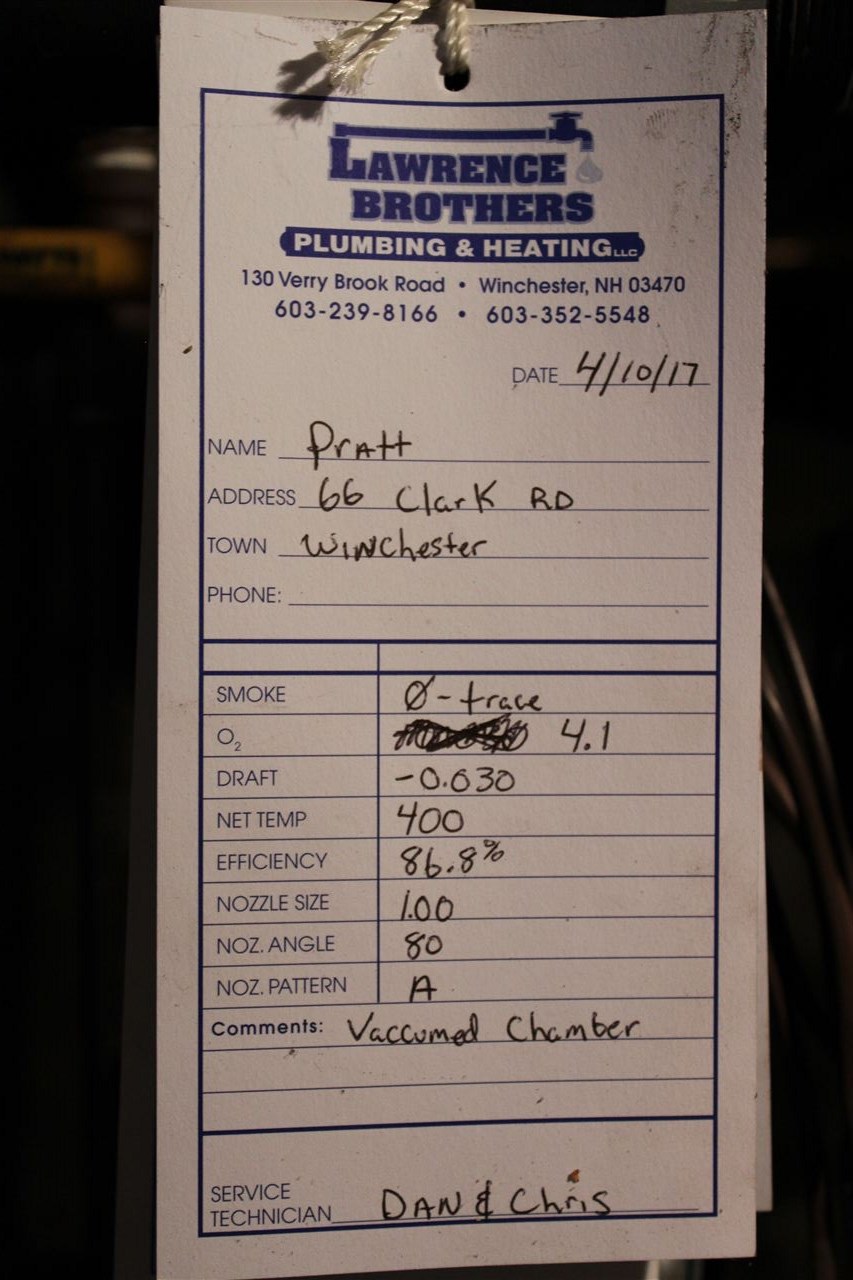 LAWRENCE
BROTHERS
PLUMBING & HEATING LLC
130 Verry Brook Road • Winchester, NH 03470
603-239-8166 • 603-352-5548
DATE 4/10/17
NAME Pratt
ADDRESS 66 Clark RD
TOWN Winchester
PHONE:
SMOKE Ø-trace
O₂ 4.1
DRAFT -0.030
NET TEMP 400
EFFICIENCY 86.8%
NOZZLE SIZE 1.00
NOZ. ANGLE 80
NOZ. PATTERN A
Comments: Vaccumed Chamber
SERVICE
TECHNICIAN DAN & Chris